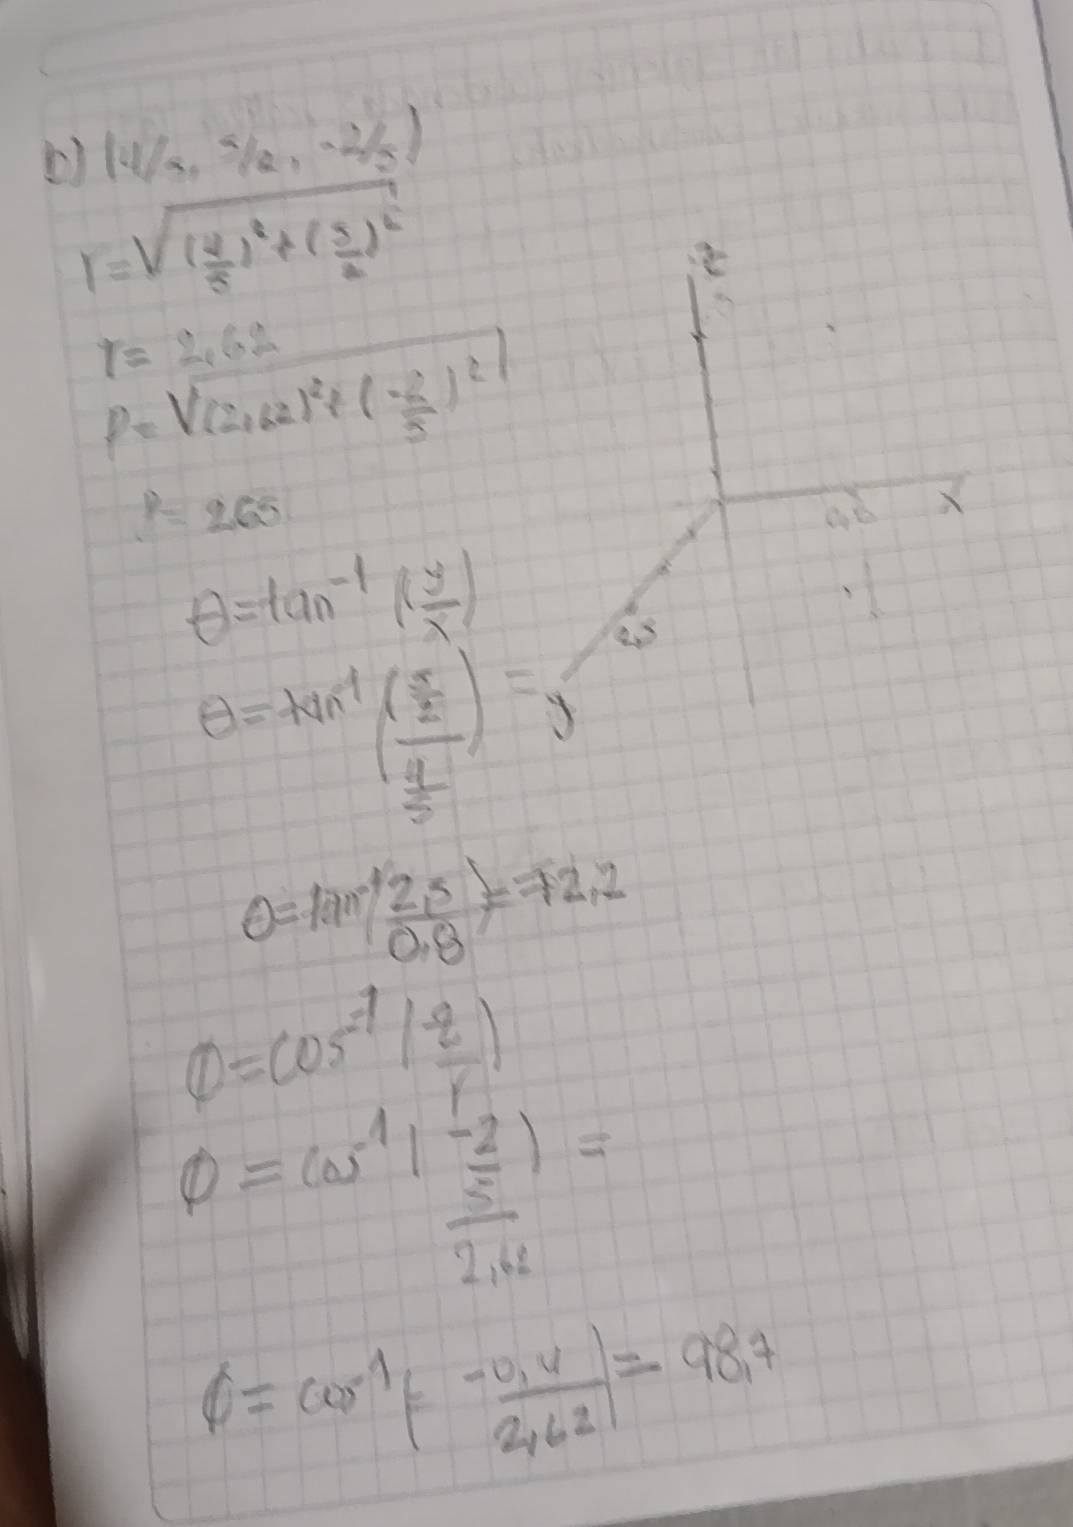 b) (4/5, 5/2, -2/5)
r = √((4/5)² + (5/2)²)
r = 2,62
ρ = √((2,62)² + (-2/5)²)
ρ = 2,65
θ = tan⁻¹ (y/x)
θ = tan⁻¹ ((5/2)/(4/5)) =
θ = tan⁻¹ (2,5/0,8) = 72,2
Φ = cos⁻¹ (z/r)
Φ = cos⁻¹ ((-2/5)/2,62) =
Φ = cos⁻¹ (-0,4/2,62) = 98,7
z
x
2,5
y